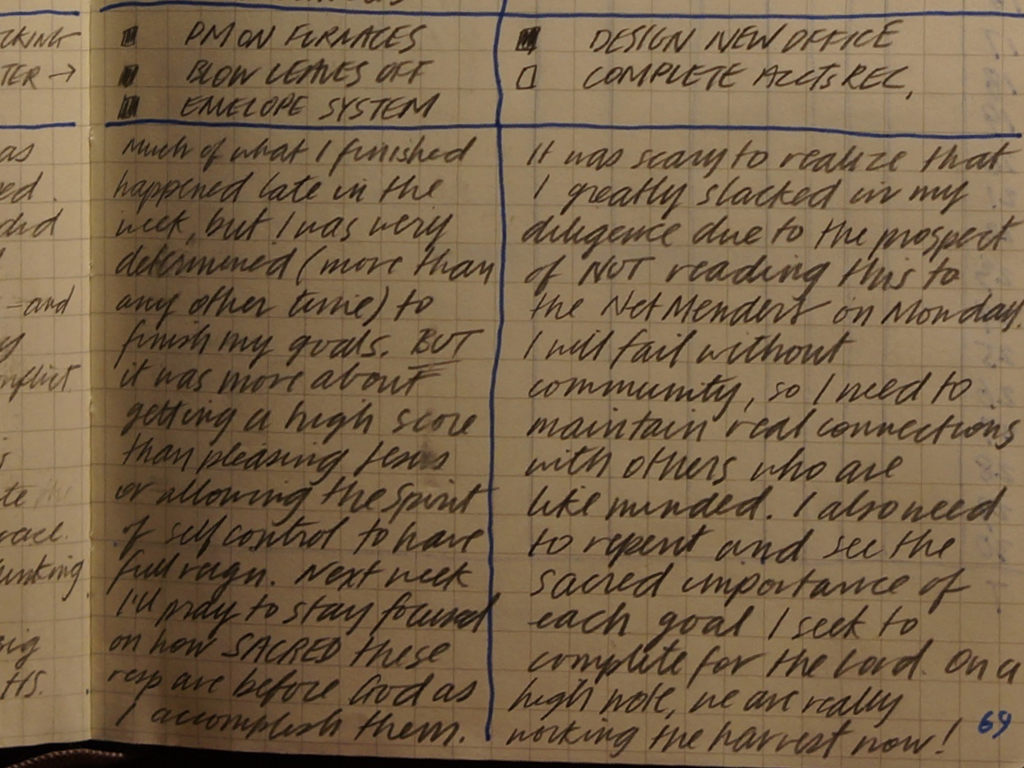 PM ON FURNACES
BLOW LEAVES OFF
ENVELOPE SYSTEM
Much of what I finished
happened late in the
week, but I was very
determined (more than
any other time) to
finish my goals. BUT
it was more about
getting a high score
than pleasing Jesus
or allowing the Spirit
of self control to have
full reign. Next week
I'll pray to stay focused
on how SACRED these
resp are before God as
I accomplish them.
DESIGN NEW OFFICE
COMPLETE ACCTS REC,
It was scary to realize that
I greatly slacked in my
diligence due to the prospect
of NOT reading this to
the Net Menders on Monday.
I will fail without
community, so I need to
maintain real connections
with others who are
like minded. I also need
to repent and see the
sacred importance of
each goal I seek to
complete for the Lord. On a
high note, we are really
working the harvest now!
69